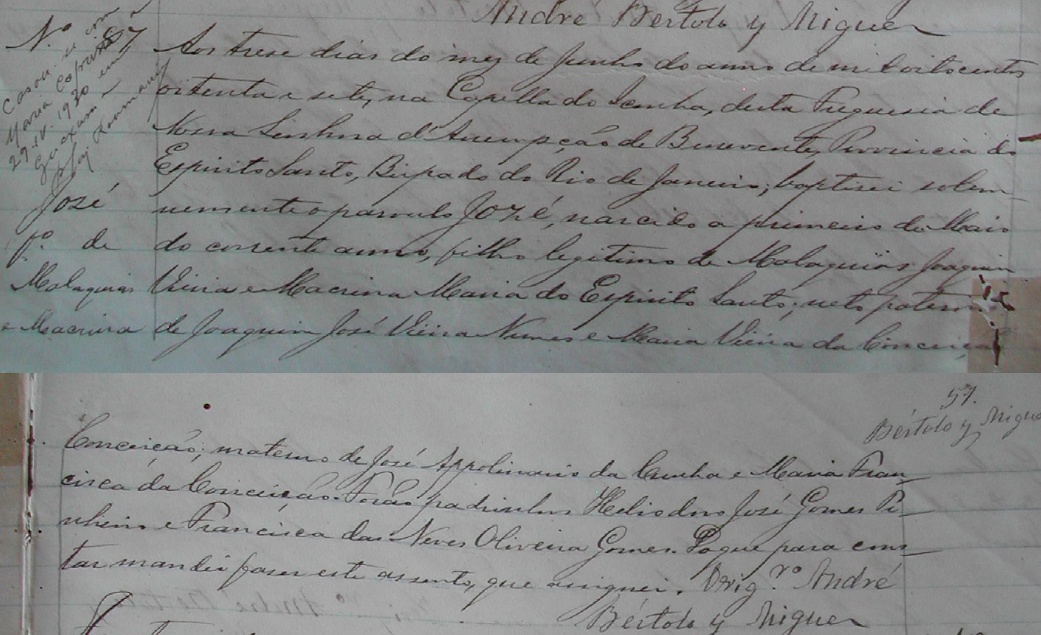 André Bértolo y Miguer
Nº 87
Casou-se com
Maria
29-IV-1920
em
José
fº. de
Malaquias
e Macrina
Aos trese dias do mez de Junho do anno de mil oitocentos
oitenta e sete, na Capella do Iconha, desta Freguesia de
Nossa Senhora d'Assumpção de Benevente, Provincia do
Espirito Santo, Bispado do Rio de Janeiro, baptisei solem-
nemente o parvulo José, nascido a primeiro de Maio
do corrente anno, filho legitimo de Malaquias Joaquim
Vieira e Macrina Maria do Espirito Santo; neto paterno
de Joaquim José Vieira Nunes e Maria Vieira da Conceição
57.
Bértolo y Miguer
Conceição; materno de José Appolinario da Cunha e Maria Fran-
cisca da Conceição. Forão padrinhos Heliodoro José Gomes Pi-
nheiro e Francisca das Neves Oliveira Gomes. Do que para cons-
tar mandei faser este assento, que assignei. Vrig.rº André
Bértolo y Miguer